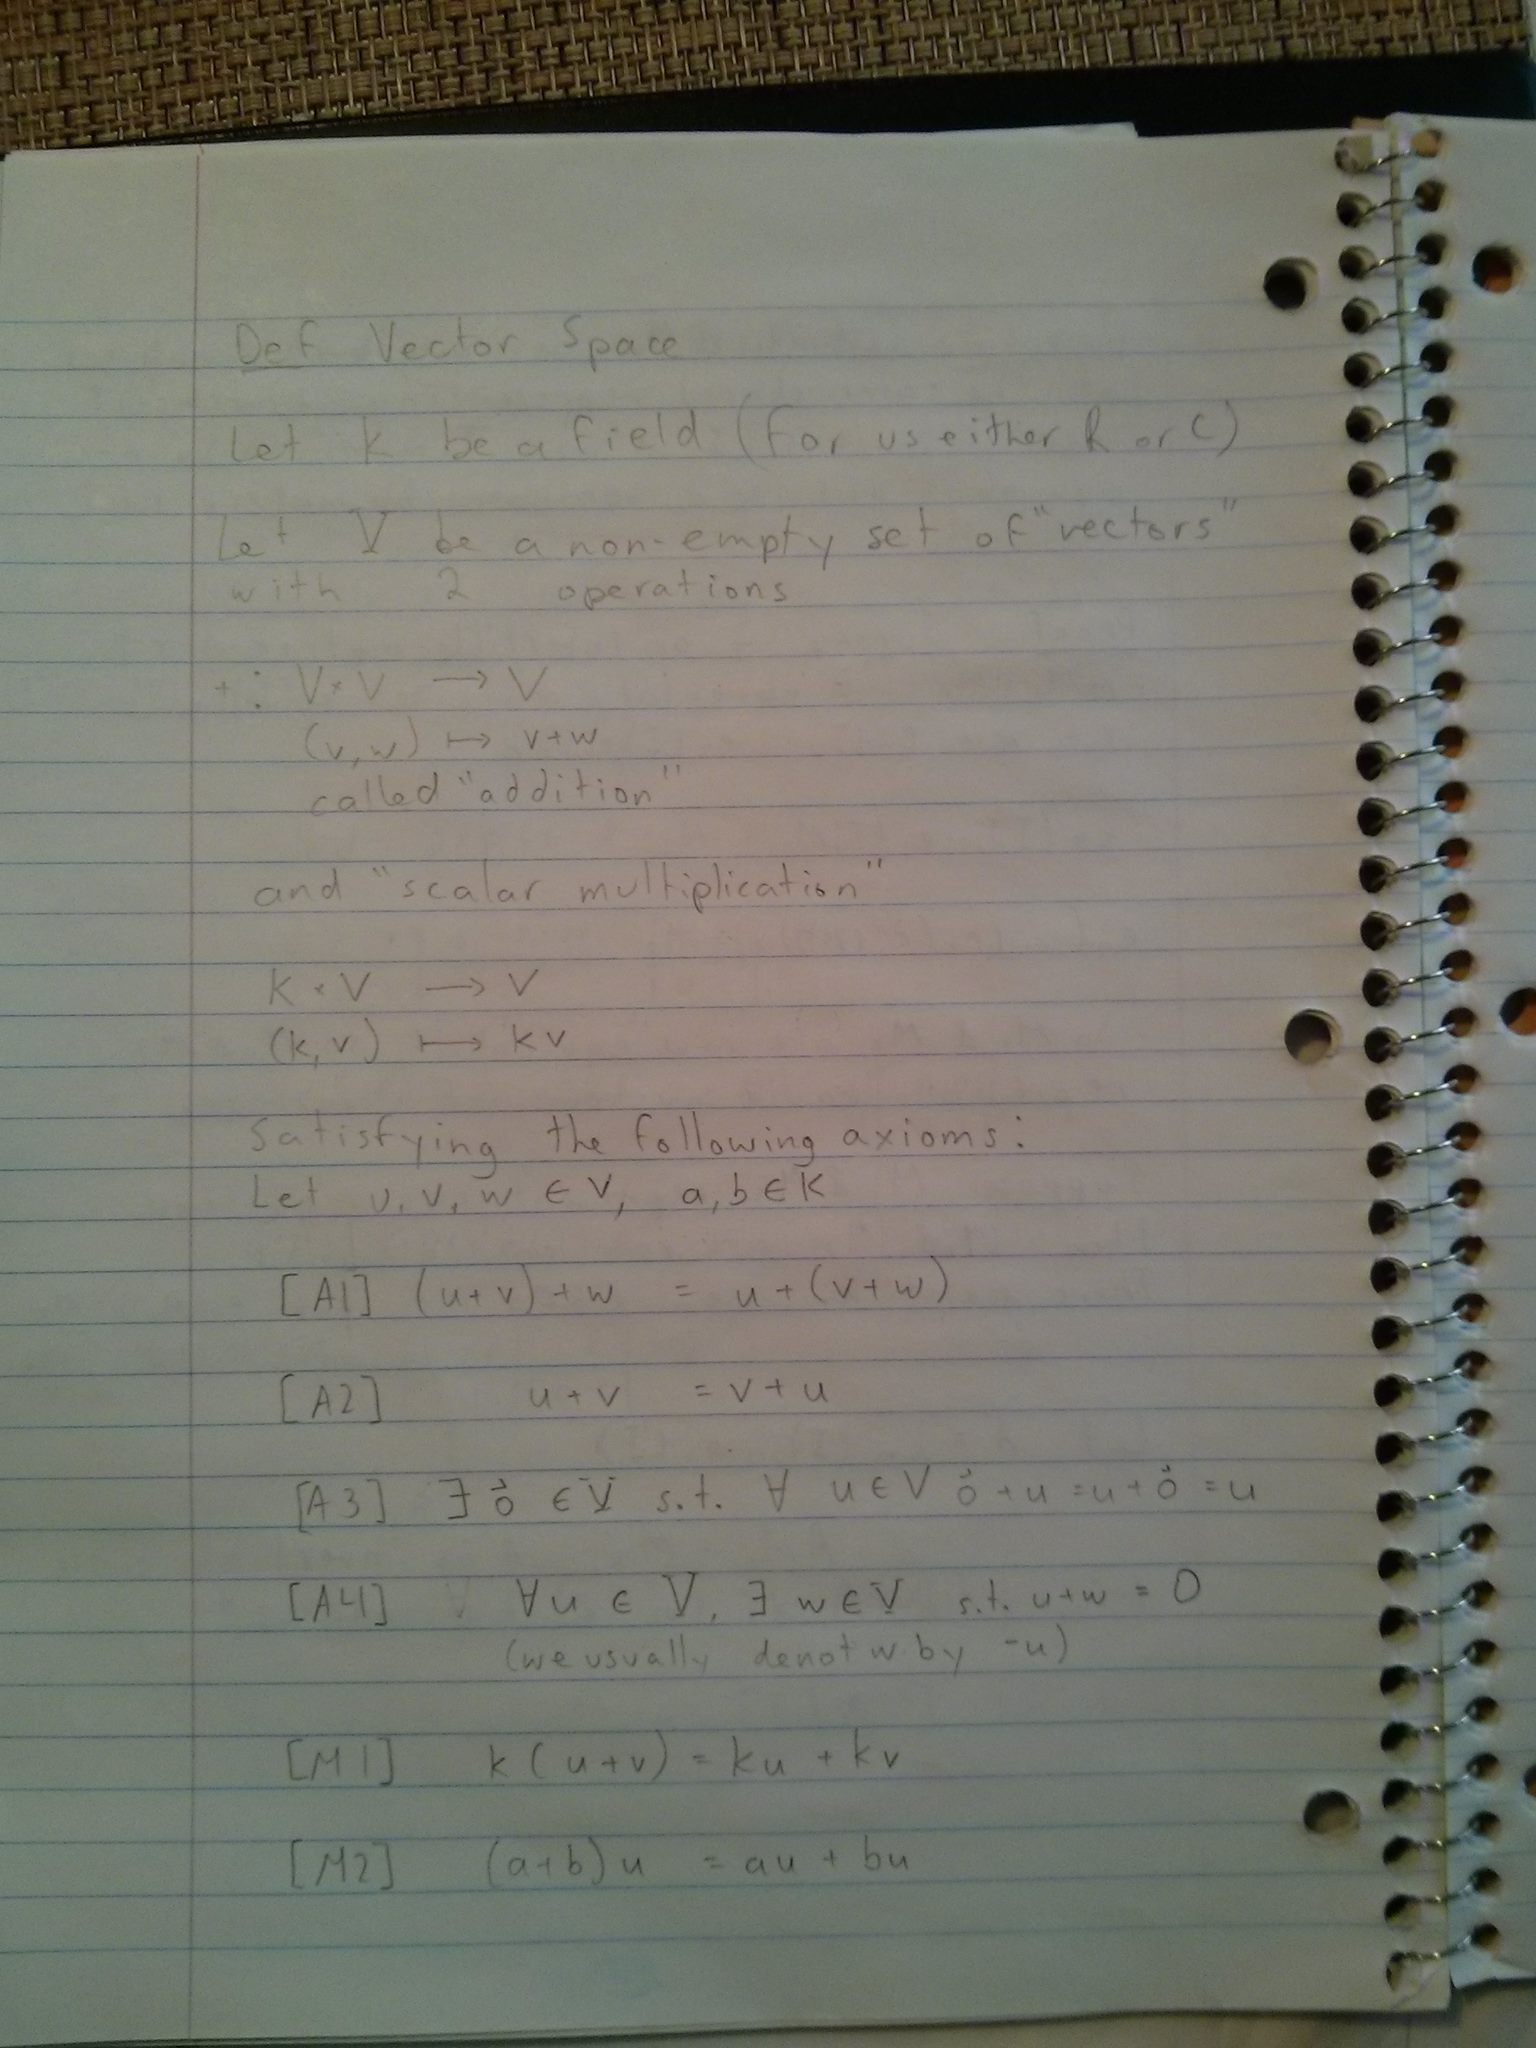 Def Vector Space
Let k be a field (for us either R or C)
Let V be a non-empty set of "vectors"
with 2 operations
+: V×V → V
(v,w) ↦ v+w
called "addition"
and "scalar multiplication"
k × V → V
(k,v) ↦ kv
Satisfying the following axioms:
Let u, v, w ∈ V, a, b ∈ k
[A1] (u+v)+w = u+(v+w)
[A2] u+v = v+u
[A3] ∃ 0⃗ ∈ V s.t. ∀ u ∈ V 0⃗+u = u+0⃗ = u
[A4] ∀u ∈ V, ∃ w ∈ V s.t. u+w = 0
(we usually denot w by -u)
[M1] k(u+v) = ku + kv
[M2] (a+b)u = au + bu